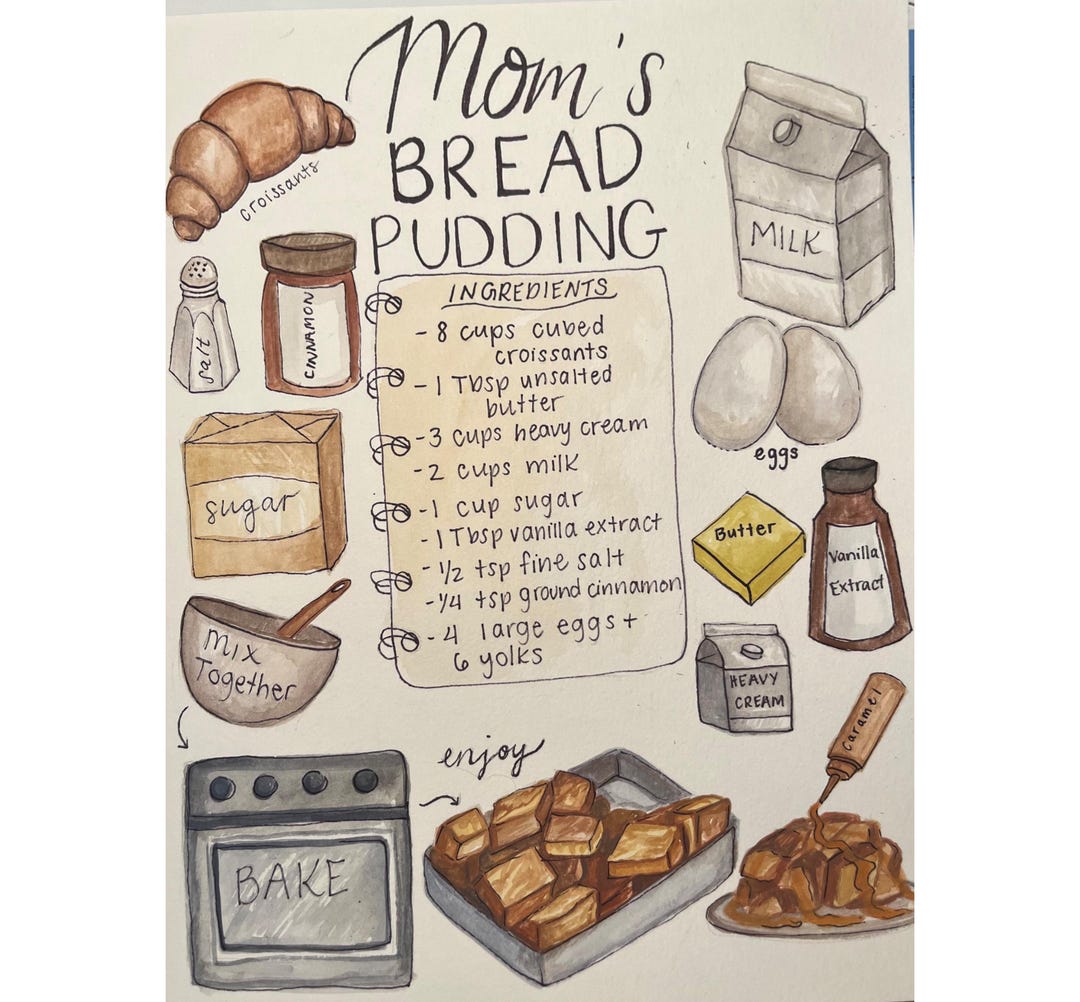 Mom's
BREAD
PUDDING
croissants
salt
CINNAMON
MILK
INGREDIENTS
- 8 cups cubed
croissants
- 1 Tbsp unsalted
butter
- 3 cups heavy cream
- 2 cups milk
- 1 cup sugar
- 1 Tbsp vanilla extract
- 1/2 tsp fine salt
- 1/4 tsp ground cinnamon
- 4 large eggs +
6 yolks
sugar
eggs
Butter
Vanilla
Extract
HEAVY
CREAM
Mix
Together
BAKE
enjoy
caramel